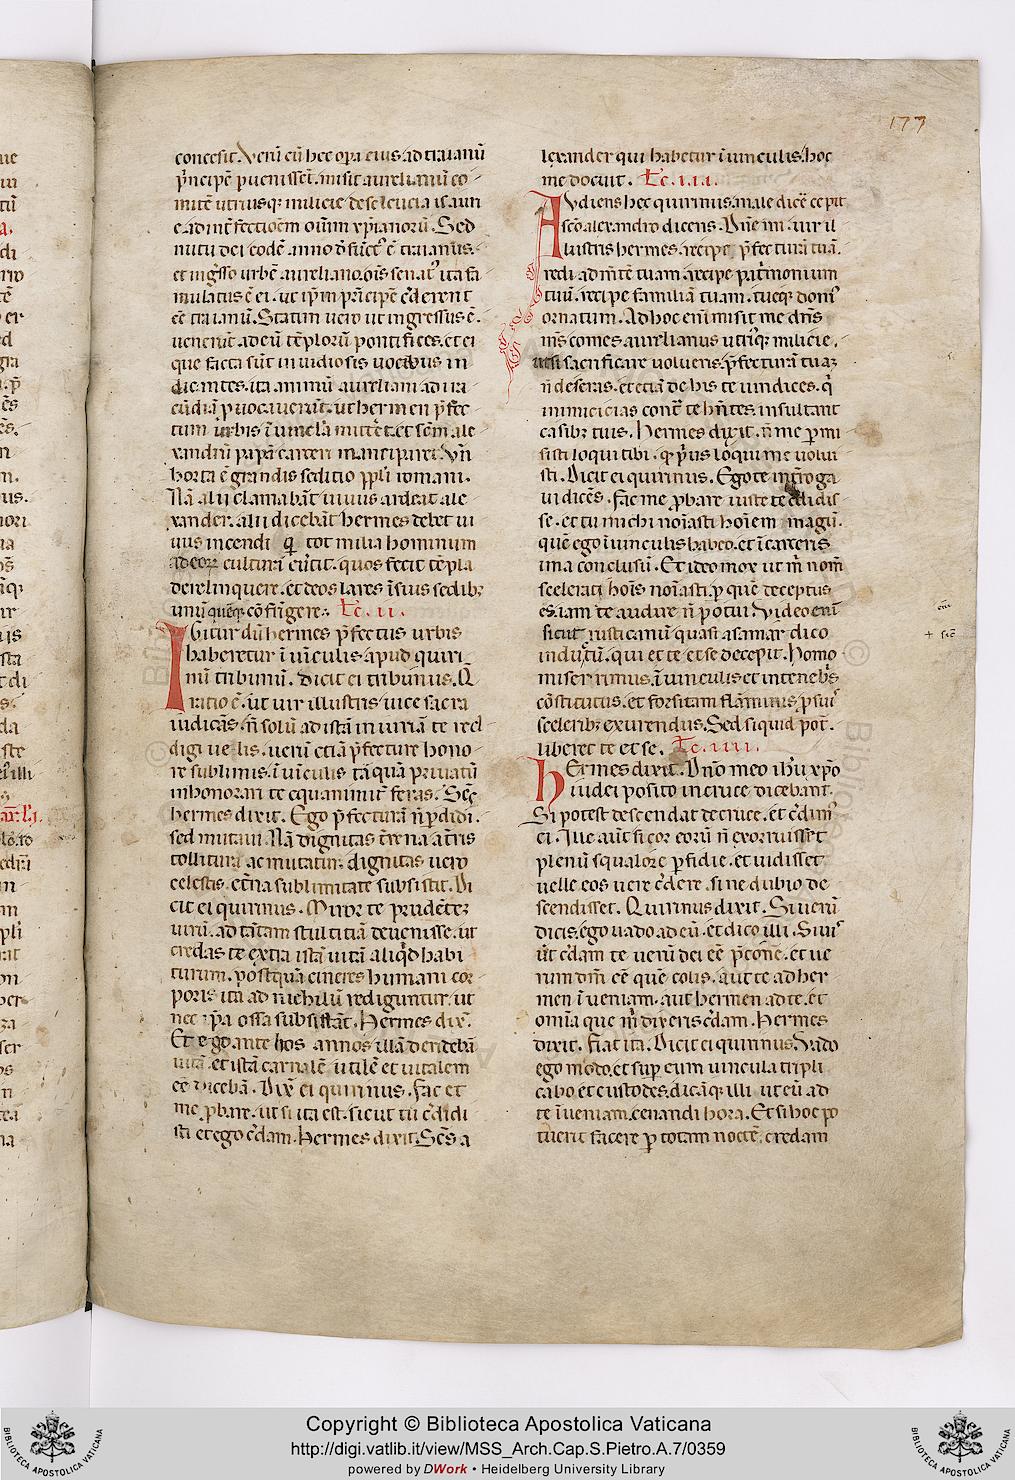 177
concesit. Venũ cũ hec opa eius ad traianũ
p̃ncipẽ puenissẽt. misit aurelianũ co
mitẽ utriusq; milicie de seleucia isaurı
e ad int̃fectioẽm oĩum xp̃ianorũ. Sed
nutu dei eodẽ anno
et ing̃sso urbẽ aureliano. oĩs senat᷒ ita fa
mulatus ẽ ei. ut ip̃m p̃ncipẽ c̃derent
eẽ traianũ. Statim uero ut ingressus ẽ.
uenerũt ad eũ tẽplorũ pontifices. et ei
que facta sũt inuidiosis uocibus in
dicantes. ita animũ aureliani ad ira
cũdiã puocauerũt. ut hermen p̃fec
tum urbis ĩ uincl̃a mitt̃et. et sc̃m ale
xandrũ papã carceri manciparet. Vñ
horta ẽ grandis seditio ppl̃i romani.
Nã alii clamabãt uiuus ardeat ale
xander. alii dicebãt hermes debet ui
uus incendi q̃ tot milia hominum
ad eorũ culturã cũtit. quos fecit tẽpla
derelinquere. et deos lares ĩ suis sedib;
unũquẽq; cõfrĩgere. L̃c. ii.
IGitur dũ hermes p̃fectus urbis
haberetur ĩ uĩculis apud quiri
nũ tribunũ. dicit ei tribunus. Q
r̃atio ẽ. ut uir illustris uice sacra
iudicãs. ñ solũ ad istã iniuriã te red
digi uelis. uerũ etiã p̃fecture hono
re sublimis. ĩ uĩculis tãquã priuatũ
inhonorari te equanimit̃ feras. Sc̃s
hermes dixit. Ego p̃fecturã ñ p̃didi.
sed mutaui. Nã dignitas t̃rena a t̃ris
tollitur ac mutatur. dignitas uero
celestis. et̃na sublimitate subsistit. Di
cit ei quirinus. Miror te prudẽtẽ
uirũ. ad tãtam stultitiã deuenisse. ut
credas te extra istã uitã aliq̃d habi
turum. postquã cineres humani cor
poris ita ad niehilũ rediguntur. ut
nec ip̃a ossa subsistãt. Hermes dix̃.
Et ego ante hos annos illã deridebã
uitã. et istã carnalẽ utilẽ et uitalem
eẽ dicebã. Dix̃ ei quirinus. Fac et
me p̃bare. ut si ita est. sicut tu c̃didi
sti et ego c̃dam. Hermes dixit. Sc̃s a
lexander qui habetur ĩ uinculis. hoc
me docuit. L̃c. iii.
AVdiens hec quirinus. male dicẽ cepit
sc̃o alexandro dicens. Dñe mi uir il
lustris hermes. recipe p̃fecturã tuã.
redi ad mẽtẽ tuam. recipe patimonium
tuũ. recipe familiã tuam. tueq; dom᷒
ornatum. Ad hoc enĩ misit me dñs
ms̃ comes aurelianus utriq; milicie.
ut si sacrificare uolueris. p̃fecturã tuã
ñ deseras. et etiã de his te uindices. q̃
inimicicias cont̃ te hñtes. insultant
casib; tuis. Hermes dixit. ñ me p̃mi
sisti loqui tibi. q̃ p̃us loqui me uolui
sti. Dicit ei quirinus. Ego te int̃roga
ui dicẽs. Fac me p̃bare iuste te c̃didis
se. et tu michi noĩasti hoĩem magũ.
quẽ ego ĩ uinculis habeo. et ĩ carceris
ima conclusũ. Et ideo mox ut m̃ nom̃
scelerati hoĩs noĩasti p quẽ deceptus
es. iam te audire ñ potui. Video enĩ
sicut rusticanũ quasi a samardico
inductũ. qui et te et se decepit. Homo
miserrimus. ĩ uinculis et in tenebris
cõstitutus. et forsitam flãminis p̃ suis
scelerib; exurendus. Sed si quid pot̃.
liberet te et se. L̃c. iiii.
HErmes dixit. Dño meo ihũ xp̃o
iudei posito in cruce dicebant.
Si potest descendat de cruce. et c̃dim᷒
ei. Ille aut̃ si cor eorũ ñ exorruisset
plenũ squalore p̃fidie. et uidisset
uelle eos uere c̃dere. sine dubio de
scendisset. Quirinus dixit. Si uerũ
dicis. ego uado ad eũ. et dico illi. Si uis
ut c̃dam te uerũ dei eẽ p̃conẽ. et ue
rum dm̃ eẽ quẽ colis. aut te ad her
men ĩueniam. aut hermen ad te. et
omĩa que m̃ dixeris c̃dam. Hermes
dixit. Fiat ita. Dicit ei quirinus. Vado
ego modo. et sup eum uincula tripli
cabo. et custodes. dicãq; illi ut eũ ad
te ĩueniam. cenandi hora. Et si hoc po
tuerit facere p totam noctẽ. credam
Copyright © Biblioteca Apostolica Vaticana
http://digi.vatlib.it/view/MSS_Arch.Cap.S.Pietro.A.7/0359
powered by DWork • Heidelberg University Library
BIBLIOTECA APOSTOLICA VATICANA
BIBLIOTECA APOSTOLICA VATICANA